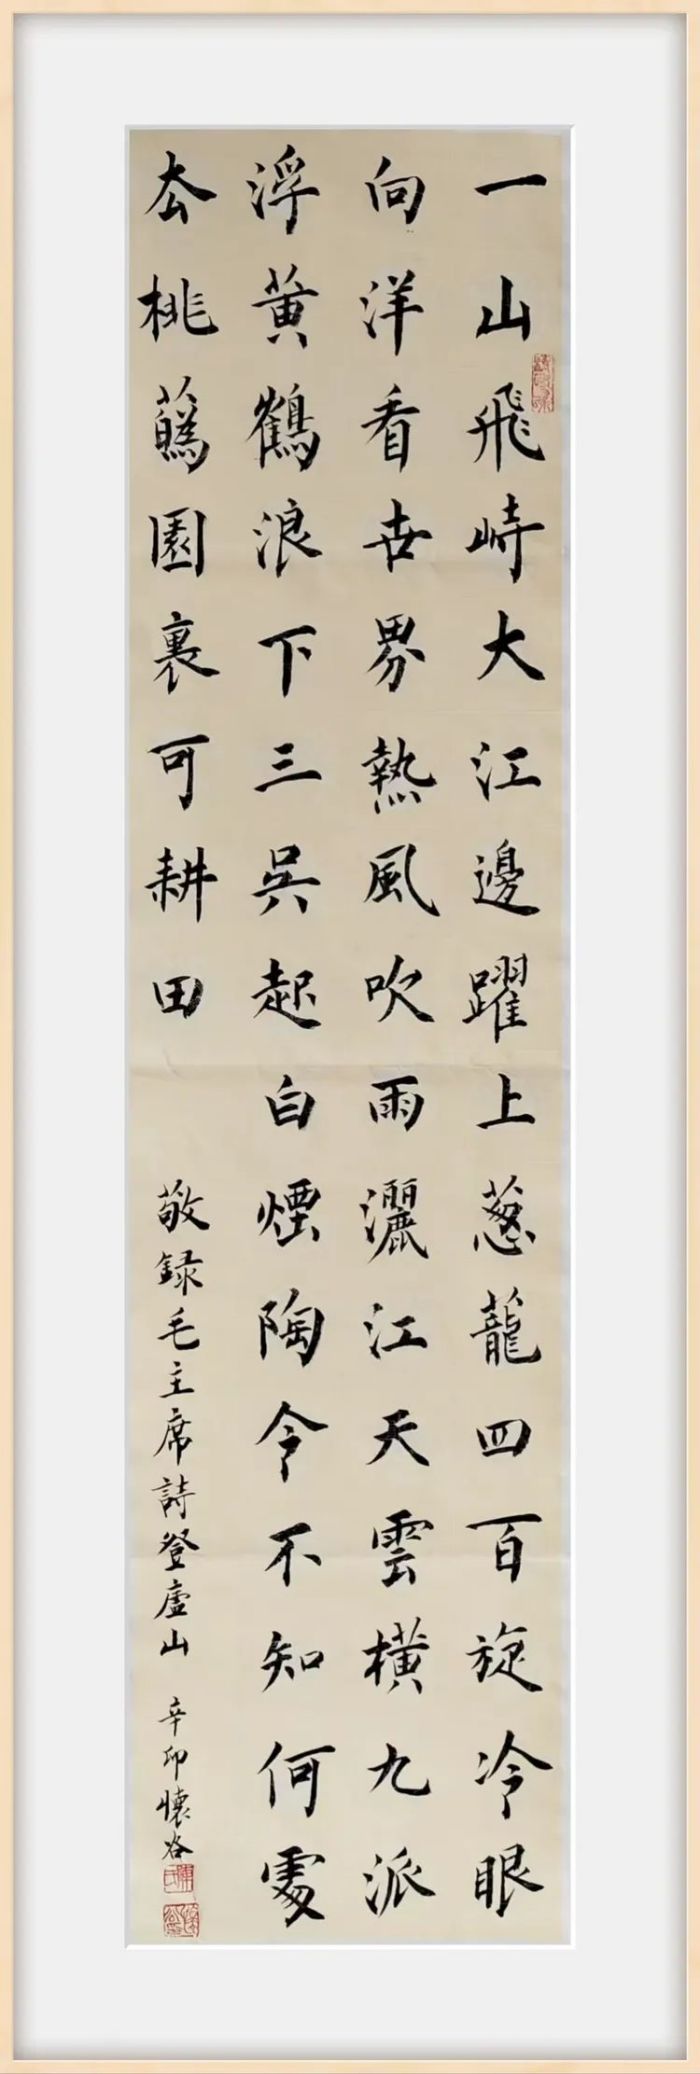 一山飛峙大江邊躍上葱蘢四百旋冷眼
向洋看世界熱風吹雨灑江天雲橫九派
浮黄鶴浪下三吳起白煙陶令不知何處
去桃蘤園裏可耕田
敬録毛主席詩登廬山 辛卯懷谷